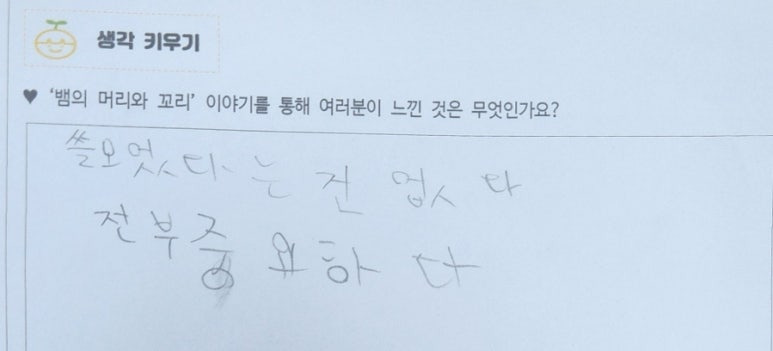 생각 키우기
♥ '뱀의 머리와 꼬리' 이야기를 통해 여러분이 느낀 것은 무엇인가요?
쓸모엇다는 건 업다
전부 중요하다